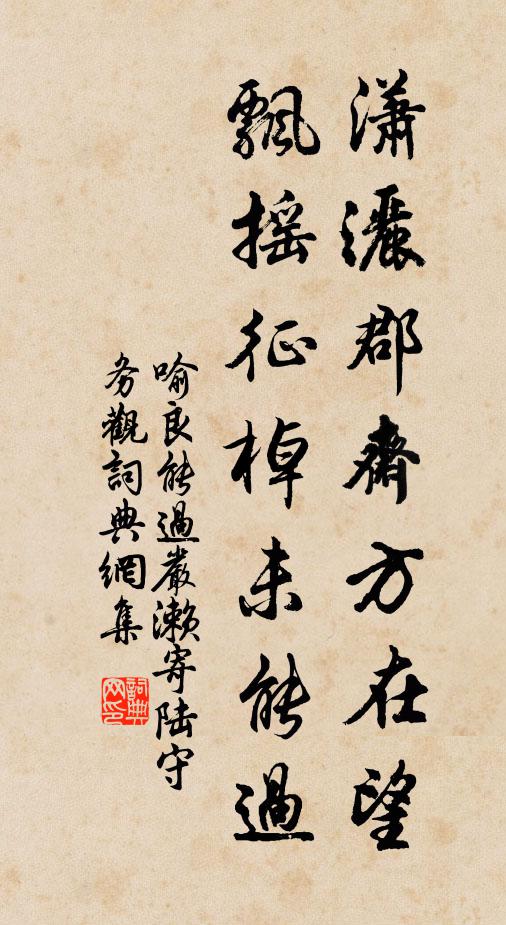 瀟灑郡齋方在望
飄摇征棹未能過
喻良能過嚴濑寄陆守
务觀詞典網集
詞典网印